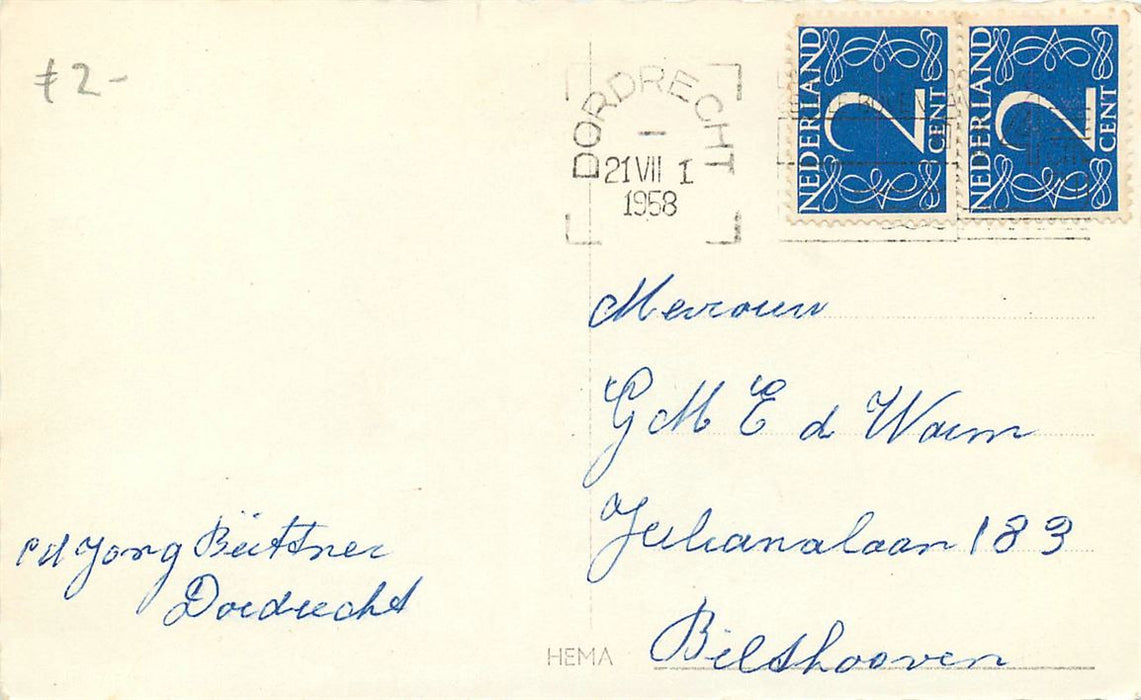 ƒ 2-
DORDRECHT
21 VII 1
1958
NEDERLAND
2
CENT
NEDERLAND
2
CENT
Mevrouw
G M E d Waim
Julianalaan 183
Bilthooven
Jong Büttner
Dordrecht
HEMA